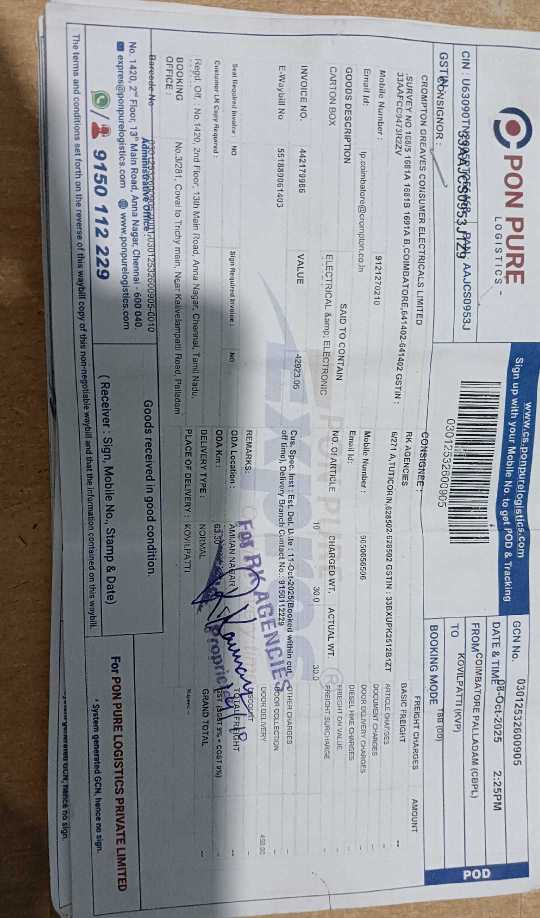 PON PURE
LOGISTICS
www.cs.ponpurelogistics.com
Sign up with your Mobile No. to get POD & Tracking
03012532600905
GCN No. 03012532600905
DATE & TIME 8-Oct-2025 2:25PM
FROM COIMBATORE PALLADAM (CBPL)
TO KOVILPATTI (KVP)
BOOKING MODE TBB (00)
POD
CIN :
PAN: AAJCS0953J
GSTIN
CONSIGNOR :
CROMPTON GREAVES CONSUMER ELECTRICALS LIMITED
,SURVEY NO 168/5 1681A 1681B 1691A B,COIMBATORE,641402-641402 GSTIN :
33AAFCC9473R2ZV
Mobile Number : 9121270210
Email Id: lp.coimbatore@crompton.co.in
CONSIGNEE :
RK AGENCIES
6/271 A,TUTICORIN,628502-628502 GSTIN :
Mobile Number :
Email Id:
GOODS DESCRIPTION SAID TO CONTAIN NO. OF ARTICLE CHARGED WT. ACTUAL WT.
CARTON BOX ELECTRICAL &amp; ELECTRONIC 10 30.0 30.0
INVOICE NO. VALUE
442179986 42923.05
E-Waybill No 551889061403
Cus. Spec. Inst : Est. Del. Date : 11-Oct-2025(Booked within cut
off time), Delivery Branch Contact No : 9150112229
REMARKS:
Seal Required Invoice : NO Sign Required Invoice : NO
Customer LR Copy Required :
ODA Location : AMMAN NAGAR
ODA Km :
DELIVERY TYPE : NORMAL
PLACE OF DELIVERY : KOVILPATTI
FREIGHT CHARGES AMOUNT
BASIC FREIGHT --
ARTICLE CHARGES
DOCUMENT CHARGES
DOOR DELIVERY CHARGES
DIESEL HIKE CHARGES
FREIGHT ON VALUE
FREIGHT SURCHARGE
OTHER CHARGES
DOOR COLLECTION
DOOR DELIVERY 450.00
GRAND TOTAL --
For RK AGENCIES
Regd. Off : No.1420, 2nd Floor, 13th Main Road, Anna Nagar, Chennai, Tamil Nadu.
BOOKING
OFFICE : No.3/281, Covai to Trichy main, Near Kalivelampatti Road, Palladam
Barcode No
Administrative Office
No. 1420, 2nd Floor, 13th Main Road, Anna Nagar, Chennai - 600 040.
expres@ponpurelogistics.com www.ponpurelogistics.com
9150 112 229
Goods received in good condition.
( Receiver : Sign, Mobile No., Stamp & Date)
For PON PURE LOGISTICS PRIVATE LIMITED
* System generated GCN, hence no sign.
The terms and conditions set forth on the reverse of this waybill copy of this non-negotiable waybill and that the information contained on this waybill.